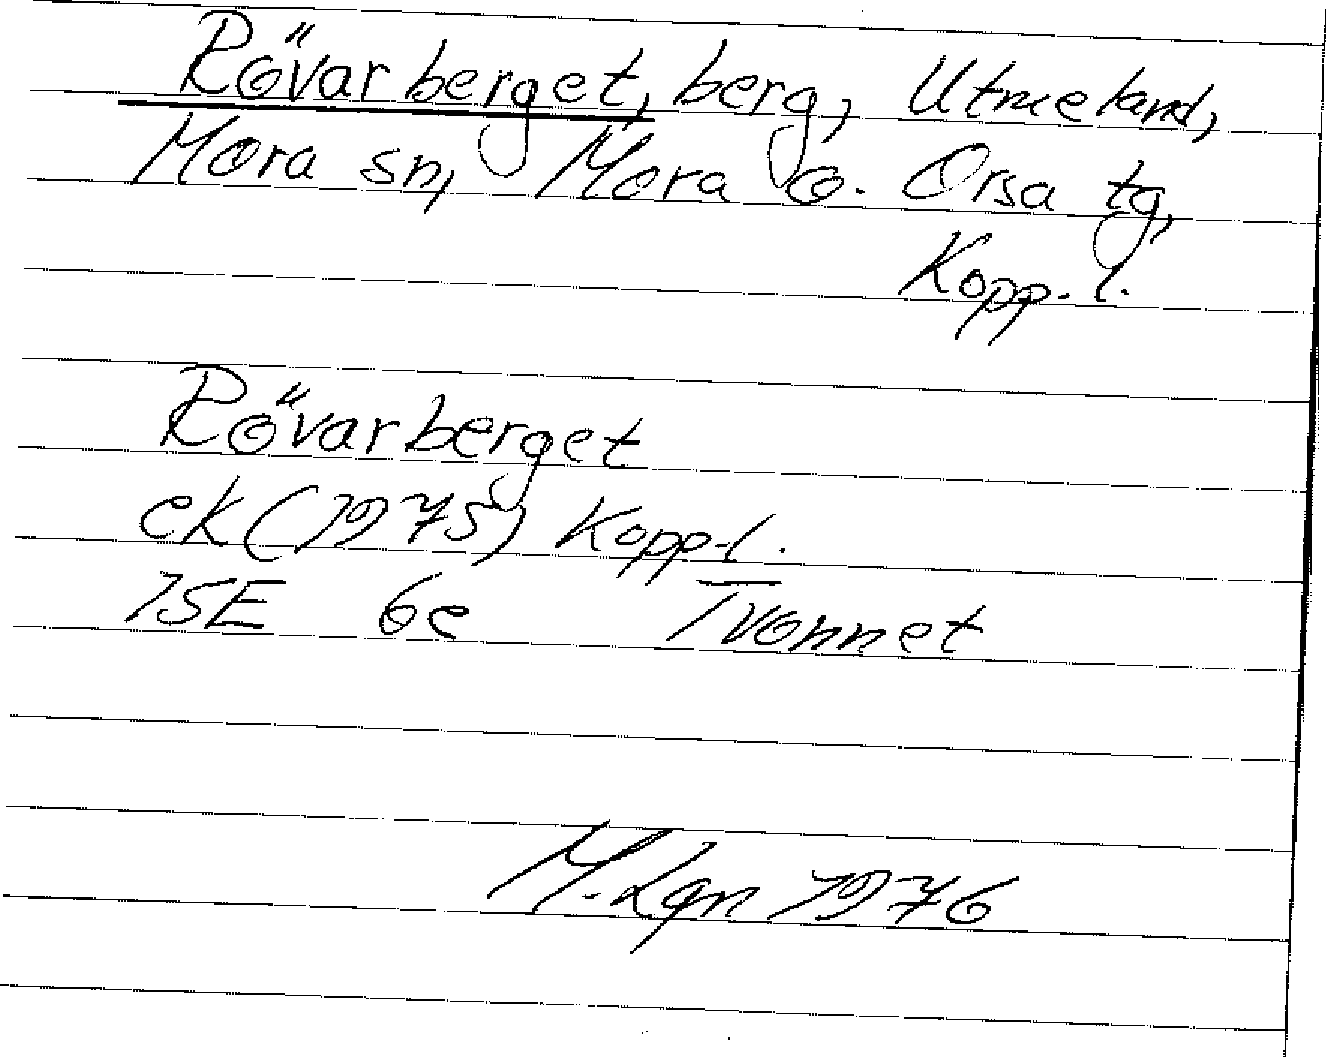 Rövarberget, berg, Utmeland,
Mora sn, Mora o. Orsa tg,
Kopp. l.
Rövarberget
ek (1975) Kopp. l.
15E 6e Tvonnet
M. Lgn 1976